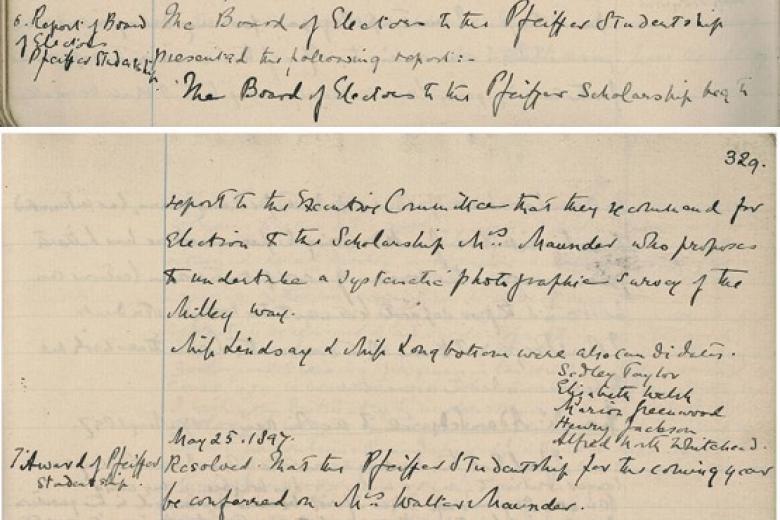 6. Report of Board
of Electors
Pfeiffer Studentship
The Board of Electors to the Pfeiffer Studentship
presented the following report:-
The Board of Electors to the Pfeiffer Scholarship beg to
329.
report to the Executive Committee that they recommend for
Election to the Scholarship Mrs. Maunder who proposes
to undertake a systematic photographic survey of the
Milky Way.
Miss Lindsay & Miss Longbottom were also candidates.
Sedley Taylor
Elizabeth Welsh
Marion Greenwood
Henry Jackson
Alfred North Whitehead.
May 25. 1897.
7. Award of Pfeiffer
Studentship.
Resolved That the Pfeiffer Studentship for the coming year
be conferred on Mrs. Walter Maunder.